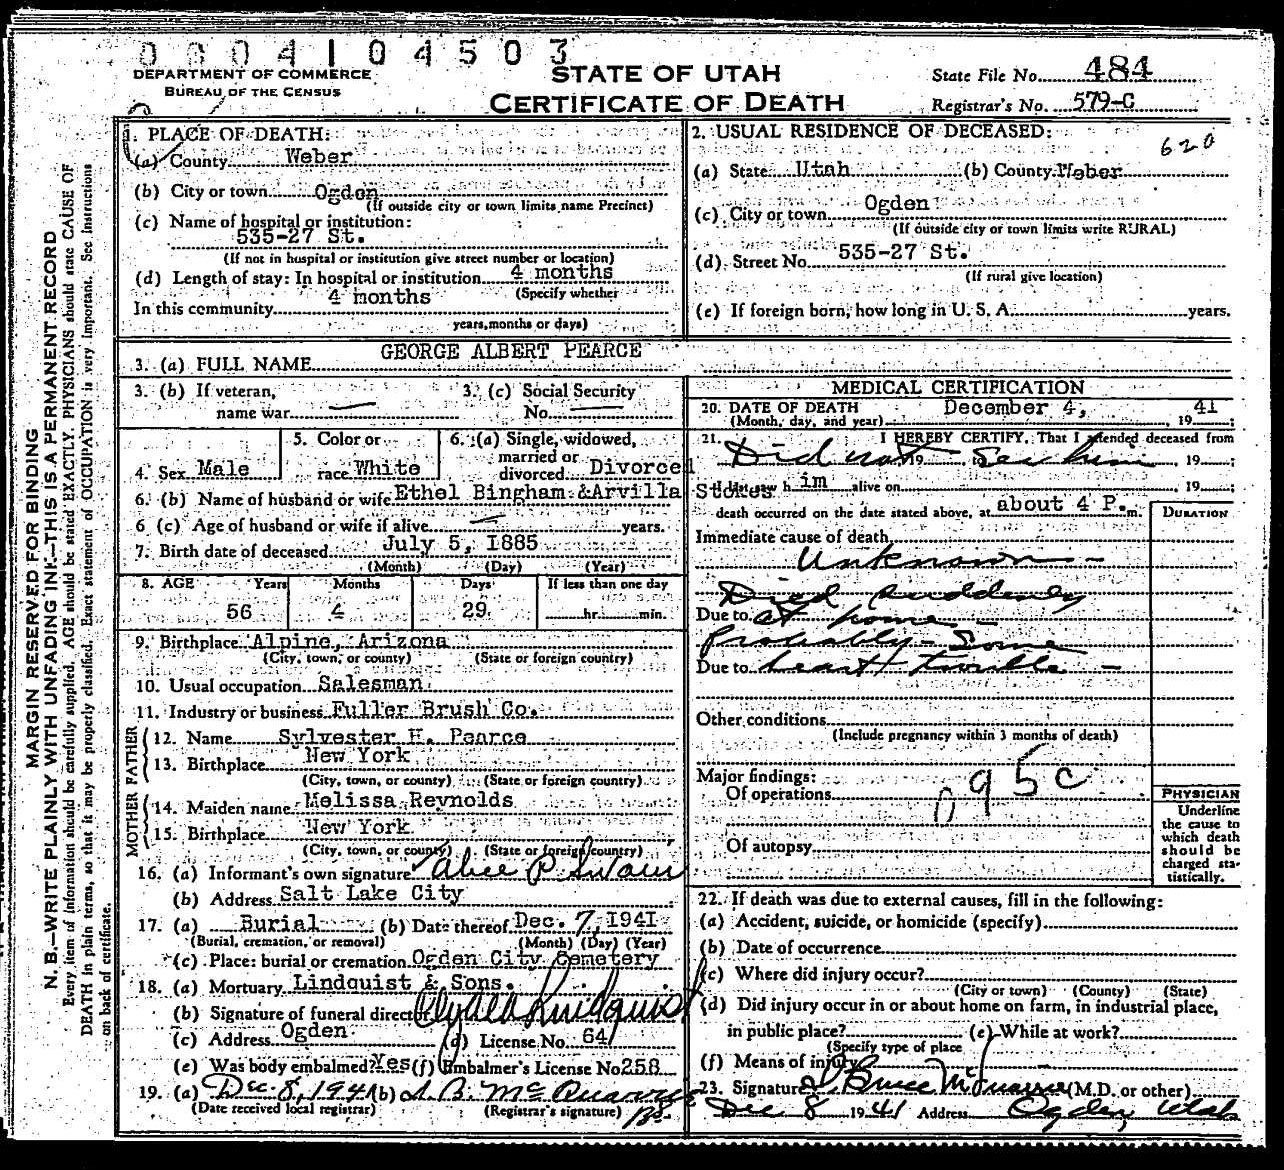 0004104503
DEPARTMENT OF COMMERCE
BUREAU OF THE CENSUS
STATE OF UTAH
CERTIFICATE OF DEATH
State File No. 484
Registrar's No. 579-C
MARGIN RESERVED FOR BINDING
N. B.—WRITE PLAINLY WITH UNFADING INK—THIS IS A PERMANENT RECORD
Every item of information should be carefully supplied. AGE should be stated EXACTLY. PHYSICIANS should state CAUSE OF
DEATH in plain terms, so that it may be properly classified. Exact statement of OCCUPATION is very important. See instructions
on back of certificate.
1. PLACE OF DEATH:
(a) County Weber
(b) City or town Ogden
(If outside city or town limits name Precinct)
(c) Name of hospital or institution:
535-27 St.
(If not in hospital or institution give street number or location)
(d) Length of stay: In hospital or institution 4 months
(Specify whether
In this community 4 months
years, months or days)
2. USUAL RESIDENCE OF DECEASED:
620
(a) State Utah (b) County Weber
(c) City or town Ogden
(If outside city or town limits write RURAL)
(d) Street No. 535-27 St.
(If rural give location)
(e) If foreign born, how long in U. S. A. years.
3. (a) FULL NAME GEORGE ALBERT PEARCE
3. (b) If veteran, name war —
3. (c) Social Security No. —
4. Sex Male
5. Color or race White
6. (a) Single, widowed, married or divorced Divorced
6. (b) Name of husband or wife Ethel Bingham & Arvilla Stokes
6 (c) Age of husband or wife if alive — years.
7. Birth date of deceased July 5, 1885
(Month) (Day) (Year)
8. AGE Years Months Days If less than one day
56 4 29 hr. min.
9. Birthplace Alpine, Arizona
(City, town, or county) (State or foreign country)
10. Usual occupation Salesman
11. Industry or business Fuller Brush Co.
FATHER
12. Name Sylvester H. Pearce
13. Birthplace New York
(City, town, or county) (State or foreign country)
MOTHER
14. Maiden name Melissa Reynolds
15. Birthplace New York
(City, town, or county) (State or foreign country)
16. (a) Informant's own signature Alice P. Swain
(b) Address Salt Lake City
17. (a) Burial (b) Date thereof Dec. 7, 1941
(Burial, cremation, or removal) (Month) (Day) (Year)
(c) Place: burial or cremation Ogden City Cemetery
18. (a) Mortuary Lindquist & Sons.
(b) Signature of funeral director Clyde Lindquist
(c) Address Ogden (d) License No. 64
(e) Was body embalmed? Yes (f) Embalmer's License No. 258
19. (a) Dec. 8, 1941 (b) I. B. McQuarrie
(Date received local registrar) (Registrar's signature)
MEDICAL CERTIFICATION
20. DATE OF DEATH December 4, 1941
(Month, day, and year) 19
21. I HEREBY CERTIFY, That I attended deceased from
Did not 19 , to See him 19 ;
I last saw h im alive on 19 ;
death occurred on the date stated above, at about 4 P. m.
DURATION
Immediate cause of death
Unknown —
Died suddenly
Due to at home —
Probably — Some
Due to heart trouble —
Other conditions
(Include pregnancy within 3 months of death)
Major findings:
Of operations
95c
Of autopsy
PHYSICIAN
Underline
the cause to
which death
should be
charged sta-
tistically.
22. If death was due to external causes, fill in the following:
(a) Accident, suicide, or homicide (specify)
(b) Date of occurrence
(c) Where did injury occur?
(City or town) (County) (State)
(d) Did injury occur in or about home on farm, in industrial place,
in public place? (e) While at work?
(Specify type of place
(f) Means of injury
23. Signature I. Bruce McQuarrie (M.D. or other)
Dec 8 1941 Address Ogden, Utah